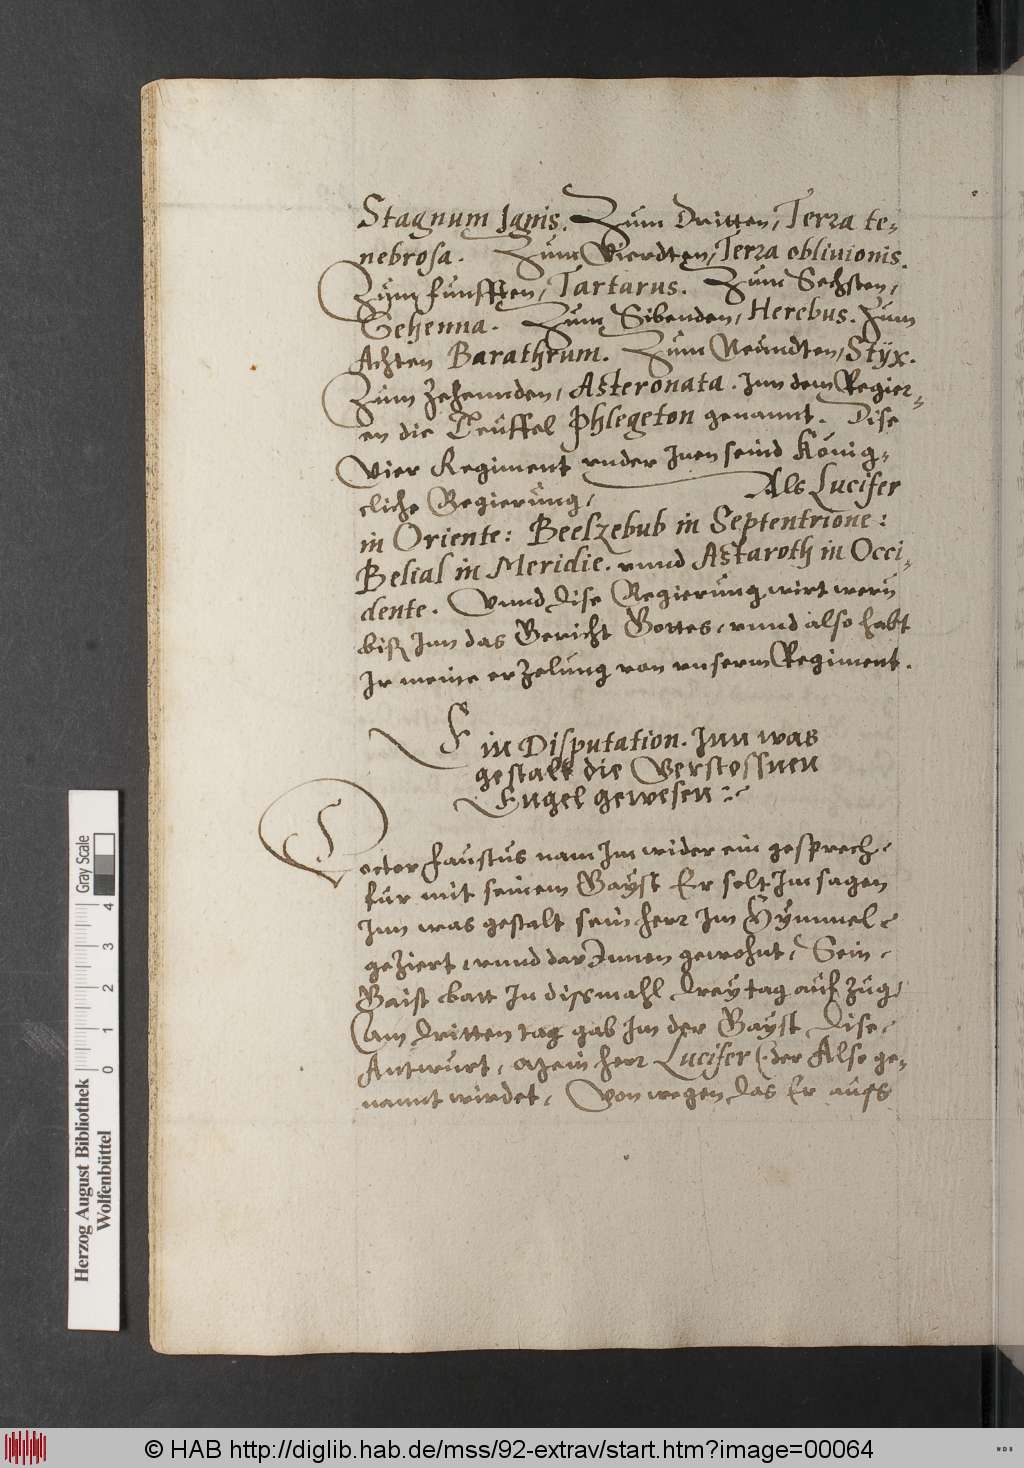 Stagnum Ignis. Zum Dritten, Terra te-
nebrosa. Zum Vierdten, Terra obliuionis.
Zum funfften, Tartarus. Zum Sechsten,
Gehenna. Zum Sibenden, Herebus. Zum
Achten Barathrum. Zum Neundten, Styx.
Zum Zehennden, Asteronata. Inn dem Regier-
en die Teuffel Phlegeton genannt. Dise
Vier Regiment vnder Inen seind König-
cliche Regierung, Als Lucifer
in Oriente: Beelzebub in Septentrione:
Belial in Meridie. vnnd Astaroth in Occi-
dente. Vnnd dise Regierung wirt wern
biß Inn das Gericht Gottes, vnnd also habt
Ir meine erzelung von vnserm Regiment.
Ein Disputation. Inn was
gestalt die Verstossnen
Engel gewesen
Doctor Faustus nam Im wider ein gesprech
für mit seinem Gayst Er solt Im sagen
Inn was gestalt sein herr Im Hymmel
geziert vnnd darInnen gewohnt, Sein
Gaist batt In dissmahl drey tag aufzug,
Am dritten tag gab Im der Gayst dise
Antwurt, Mein herr Lucifer (der Also ge-
nannt wirdet, Von wegen das Er auss
Gray Scale
0 1 2 3 4
Herzog August Bibliothek
Wolfenbüttel
© HAB http://diglib.hab.de/mss/92-extrav/start.htm?image=00064